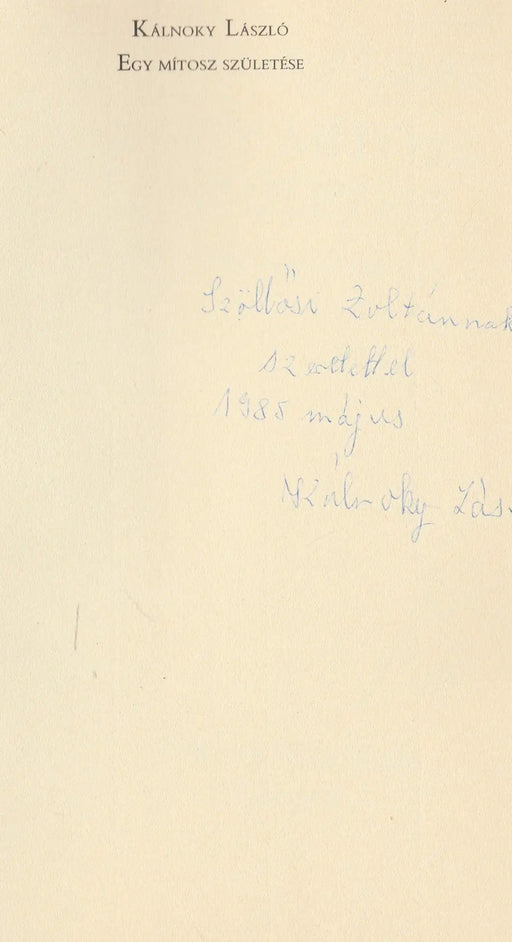 KÁLNOKY LÁSZLÓ
EGY MÍTOSZ SZÜLETÉSE
Szöllősi Zoltánnak
szeretettel
1985 május
Kálnoky Lás